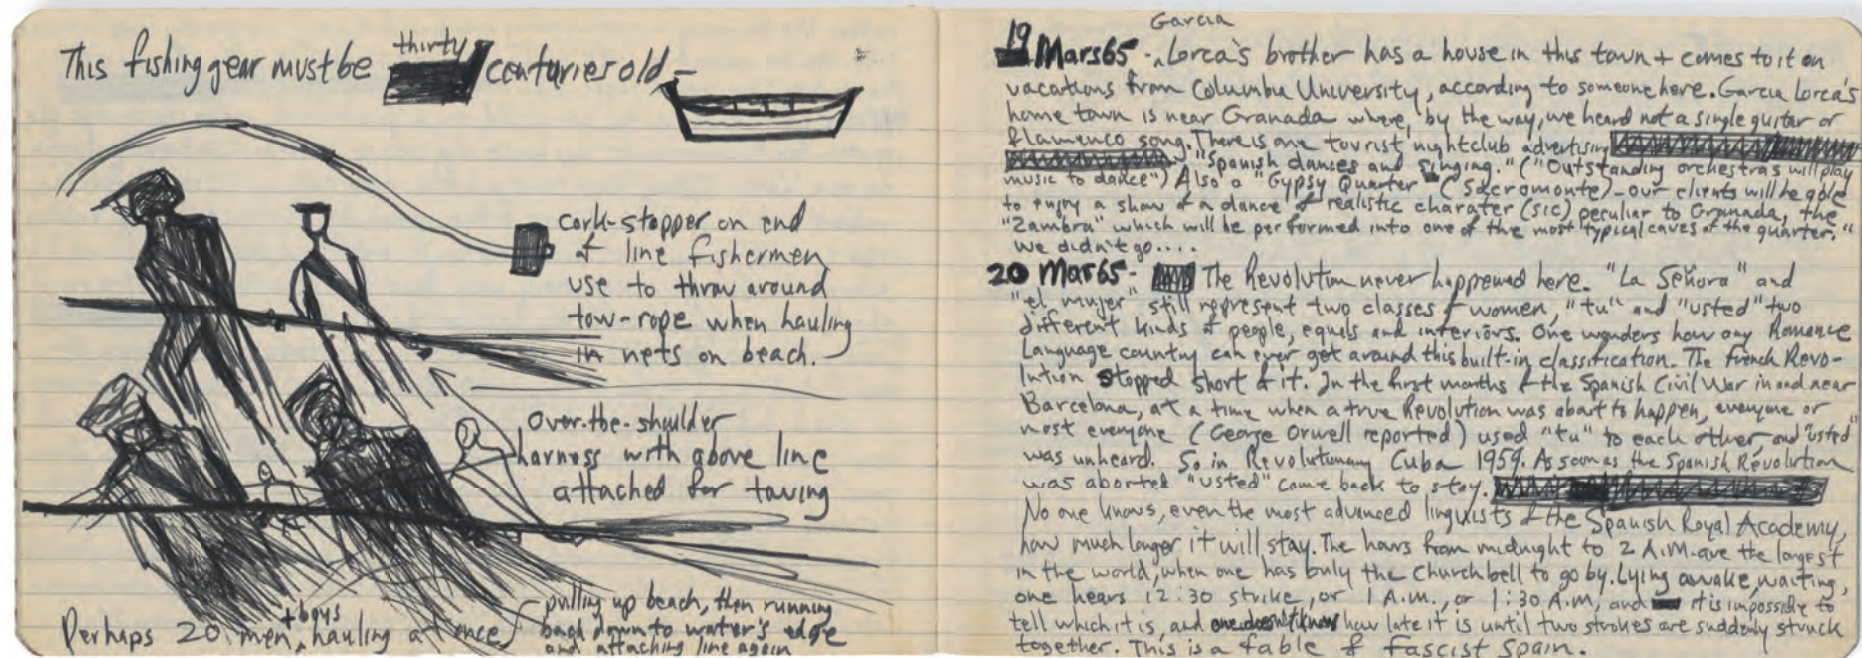 This fishing gear must be thirty centuries old -
cork-stopper on end
of line fishermen
use to throw around
tow-rope when hauling
in nets on beach.
Over-the-shoulder
harness with above line
attached for towing
Perhaps 20 men + boys, hauling at once
pulling up beach, then running
back down to water's edge
and attaching line again
19 Mars 65 - Garcia Lorca's brother has a house in this town + comes to it on
vacations from Columbia University, according to someone here. Garcia Lorca's
home town is near Granada where, by the way, we heard not a single guitar or
flamenco song. There is one tourist nightclub advertising
"Spanish dances and singing." ("Outstanding orchestras will play
music to dance") Also a "Gypsy Quarter" (Sacromonte) - our clients will be able
to enjoy a show of a dance of realistic charater (sic) peculiar to Granada, the
"Zambra" which will be performed into one of the most typical caves of the quarter."
We didn't go....
20 Mar 65 - The Revolution never happened here. "La Señora" and
"el mujer" still represent two classes of women, "tu" and "usted" two
different kinds of people, equals and inferiors. One wonders how any Romance
Language country can ever get around this built-in classification. The French Revo-
lution stopped short of it. In the first months of the Spanish Civil War in and near
Barcelona, at a time when a true Revolution was about to happen, everyone or
most everyone (George Orwell reported) used "tu" to each other and "usted"
was unheard. So in Revolutionary Cuba 1959. As soon as the Spanish Revolution
was aborted "usted" came back to stay.
No one knows, even the most advanced linguists of the Spanish Royal Academy,
how much longer it will stay. The hours from midnight to 2 A.M. are the longest
in the world, when one has only the church bell to go by. Lying awake, waiting,
one hears 12:30 strike, or 1 A.M., or 1:30 A.M, and it is impossible to
tell which it is, and one doesn't know how late it is until two strokes are suddenly struck
together. This is a fable of Fascist Spain.